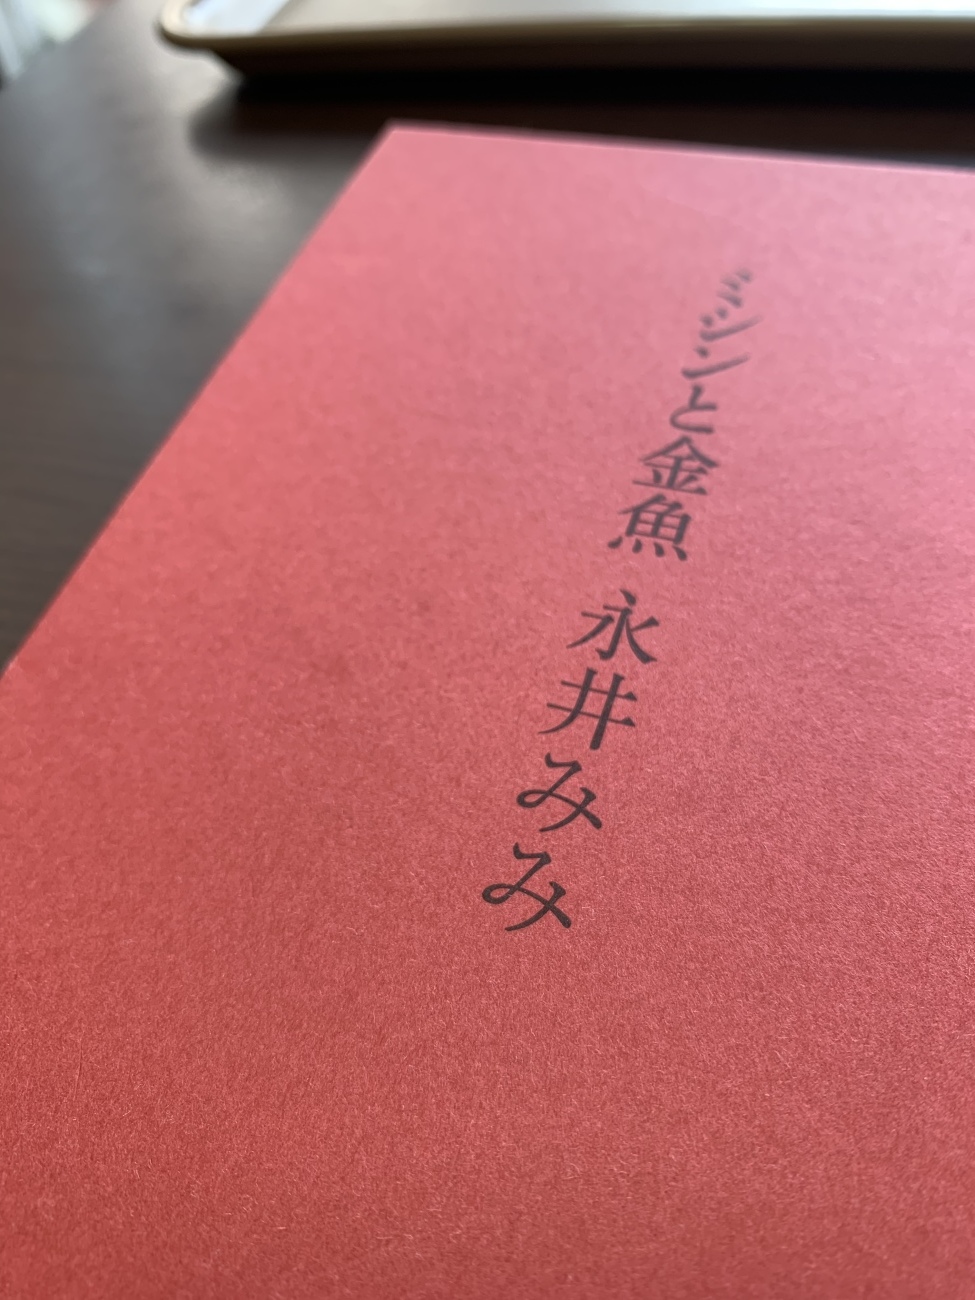 ミシンと金魚 永井みみ